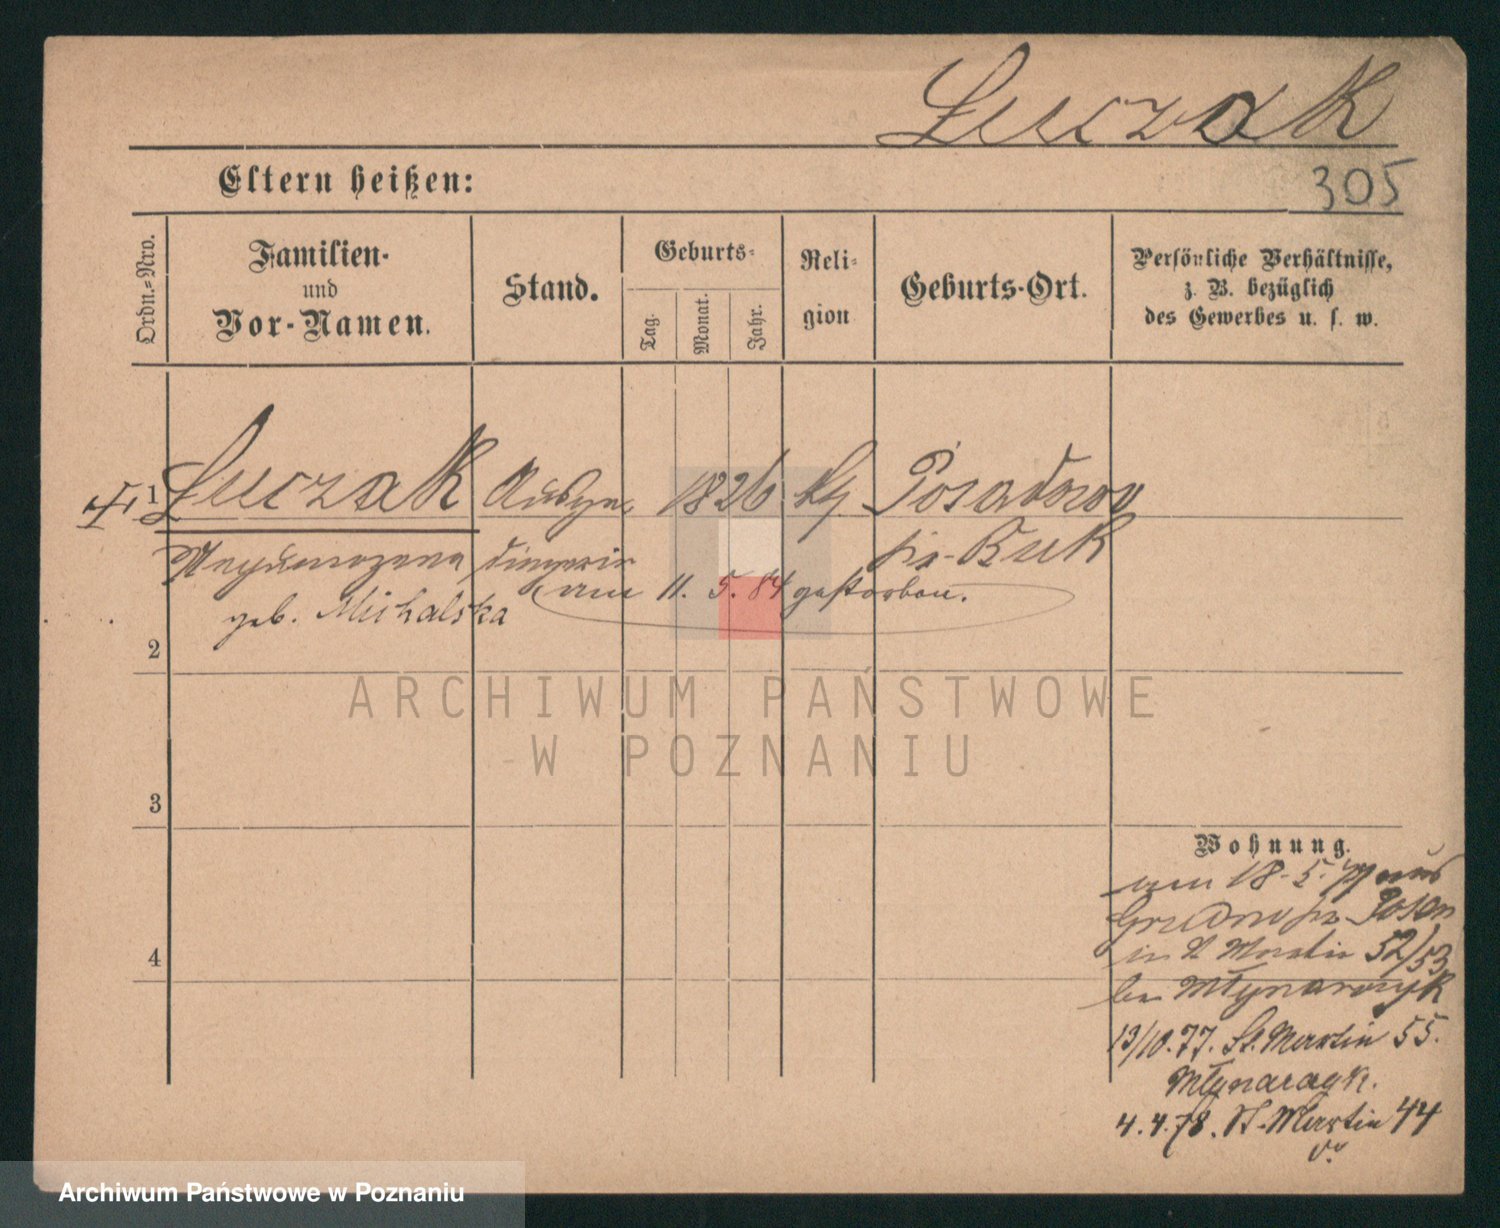 Luczak
Eltern heißen:
305
Ordn.=Nro.
Familien-
und
Vor-Namen.
Stand.
Geburts=
Tag.
Monat.
Jahr.
Reli=
gion
Geburts-Ort.
Persönliche Verhältnisse,
z. B. bezüglich
des Gewerbes u. s. w.
1 Luczak 1826 Posadowo
pr. Buk
geb. Michalska
am 11. 5. 84 gestorben.
2
ARCHIWUM PAŃSTWOWE
W POZNANIU
3
4
Wohnung.
am 18. 5. 77 aus
pr. Posen
in St Martin 52/53
bei Młynarczyk
13/10. 77. St. Martin 55.
4. 4. 78. St. Martin 44
Archiwum Państwowe w Poznaniu